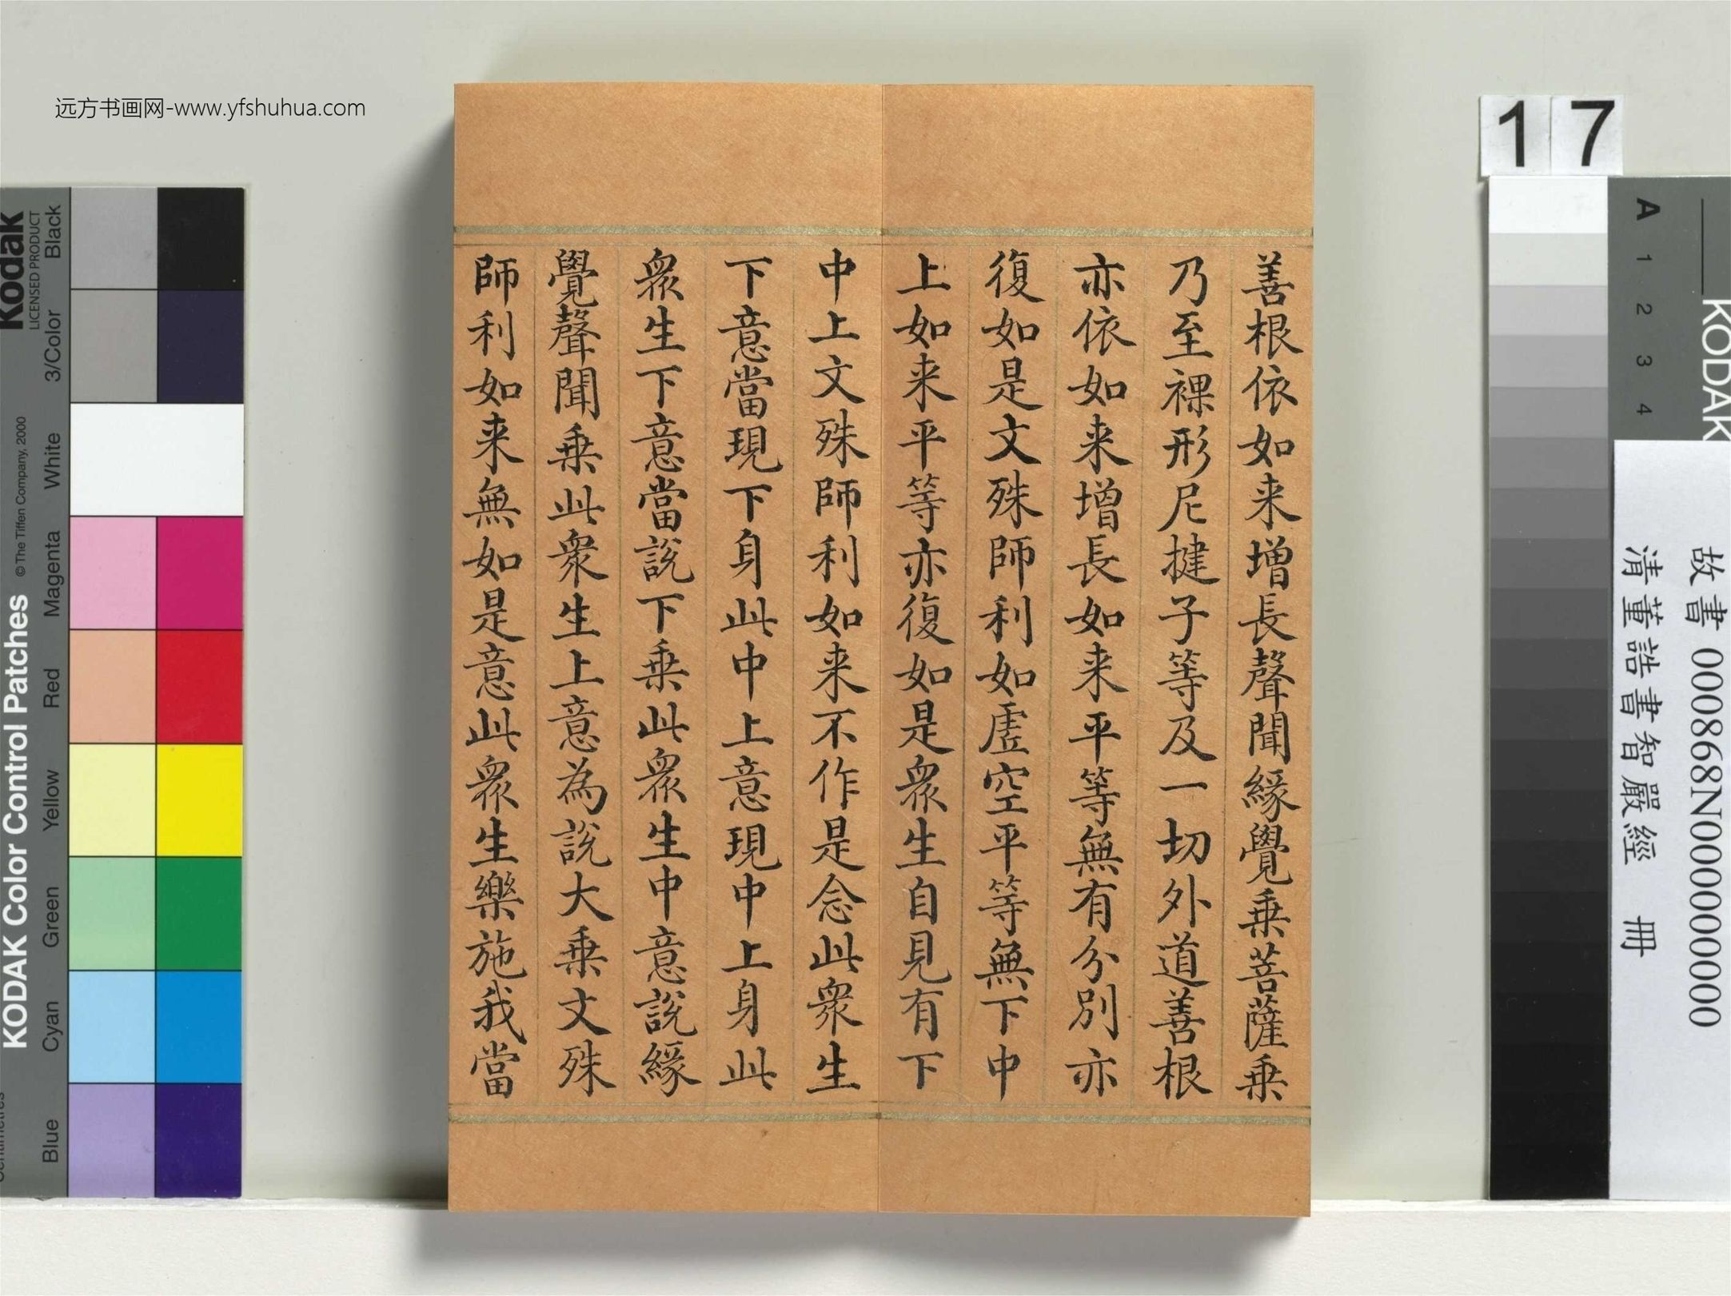 远方书画网-www.yfshuhua.com
善根依如来增長聲聞緣覺乗菩薩乗
乃至裸形尼揵子等及一切外道善根
亦依如来增長如来平等無有分別亦
復如是文殊師利如虗空平等無下中
上如来平等亦復如是衆生自見有下
中上文殊師利如来不作是念此衆生
下意當現下身此中上意現中上身此
衆生下意當說下乗此衆生中意說緣
覺聲聞乗此衆生上意為說大乗文殊
師利如来無如是意此衆生樂施我當
17
故書 000868N000000000
清董誥書智嚴經 冊
Kodak
LICENSED PRODUCT
KODAK Color Control Patches
© The Tiffen Company, 2000
Black
3/Color
White
Magenta
Red
Yellow
Green
Cyan
Blue
A 1 2 3 4
KODAK